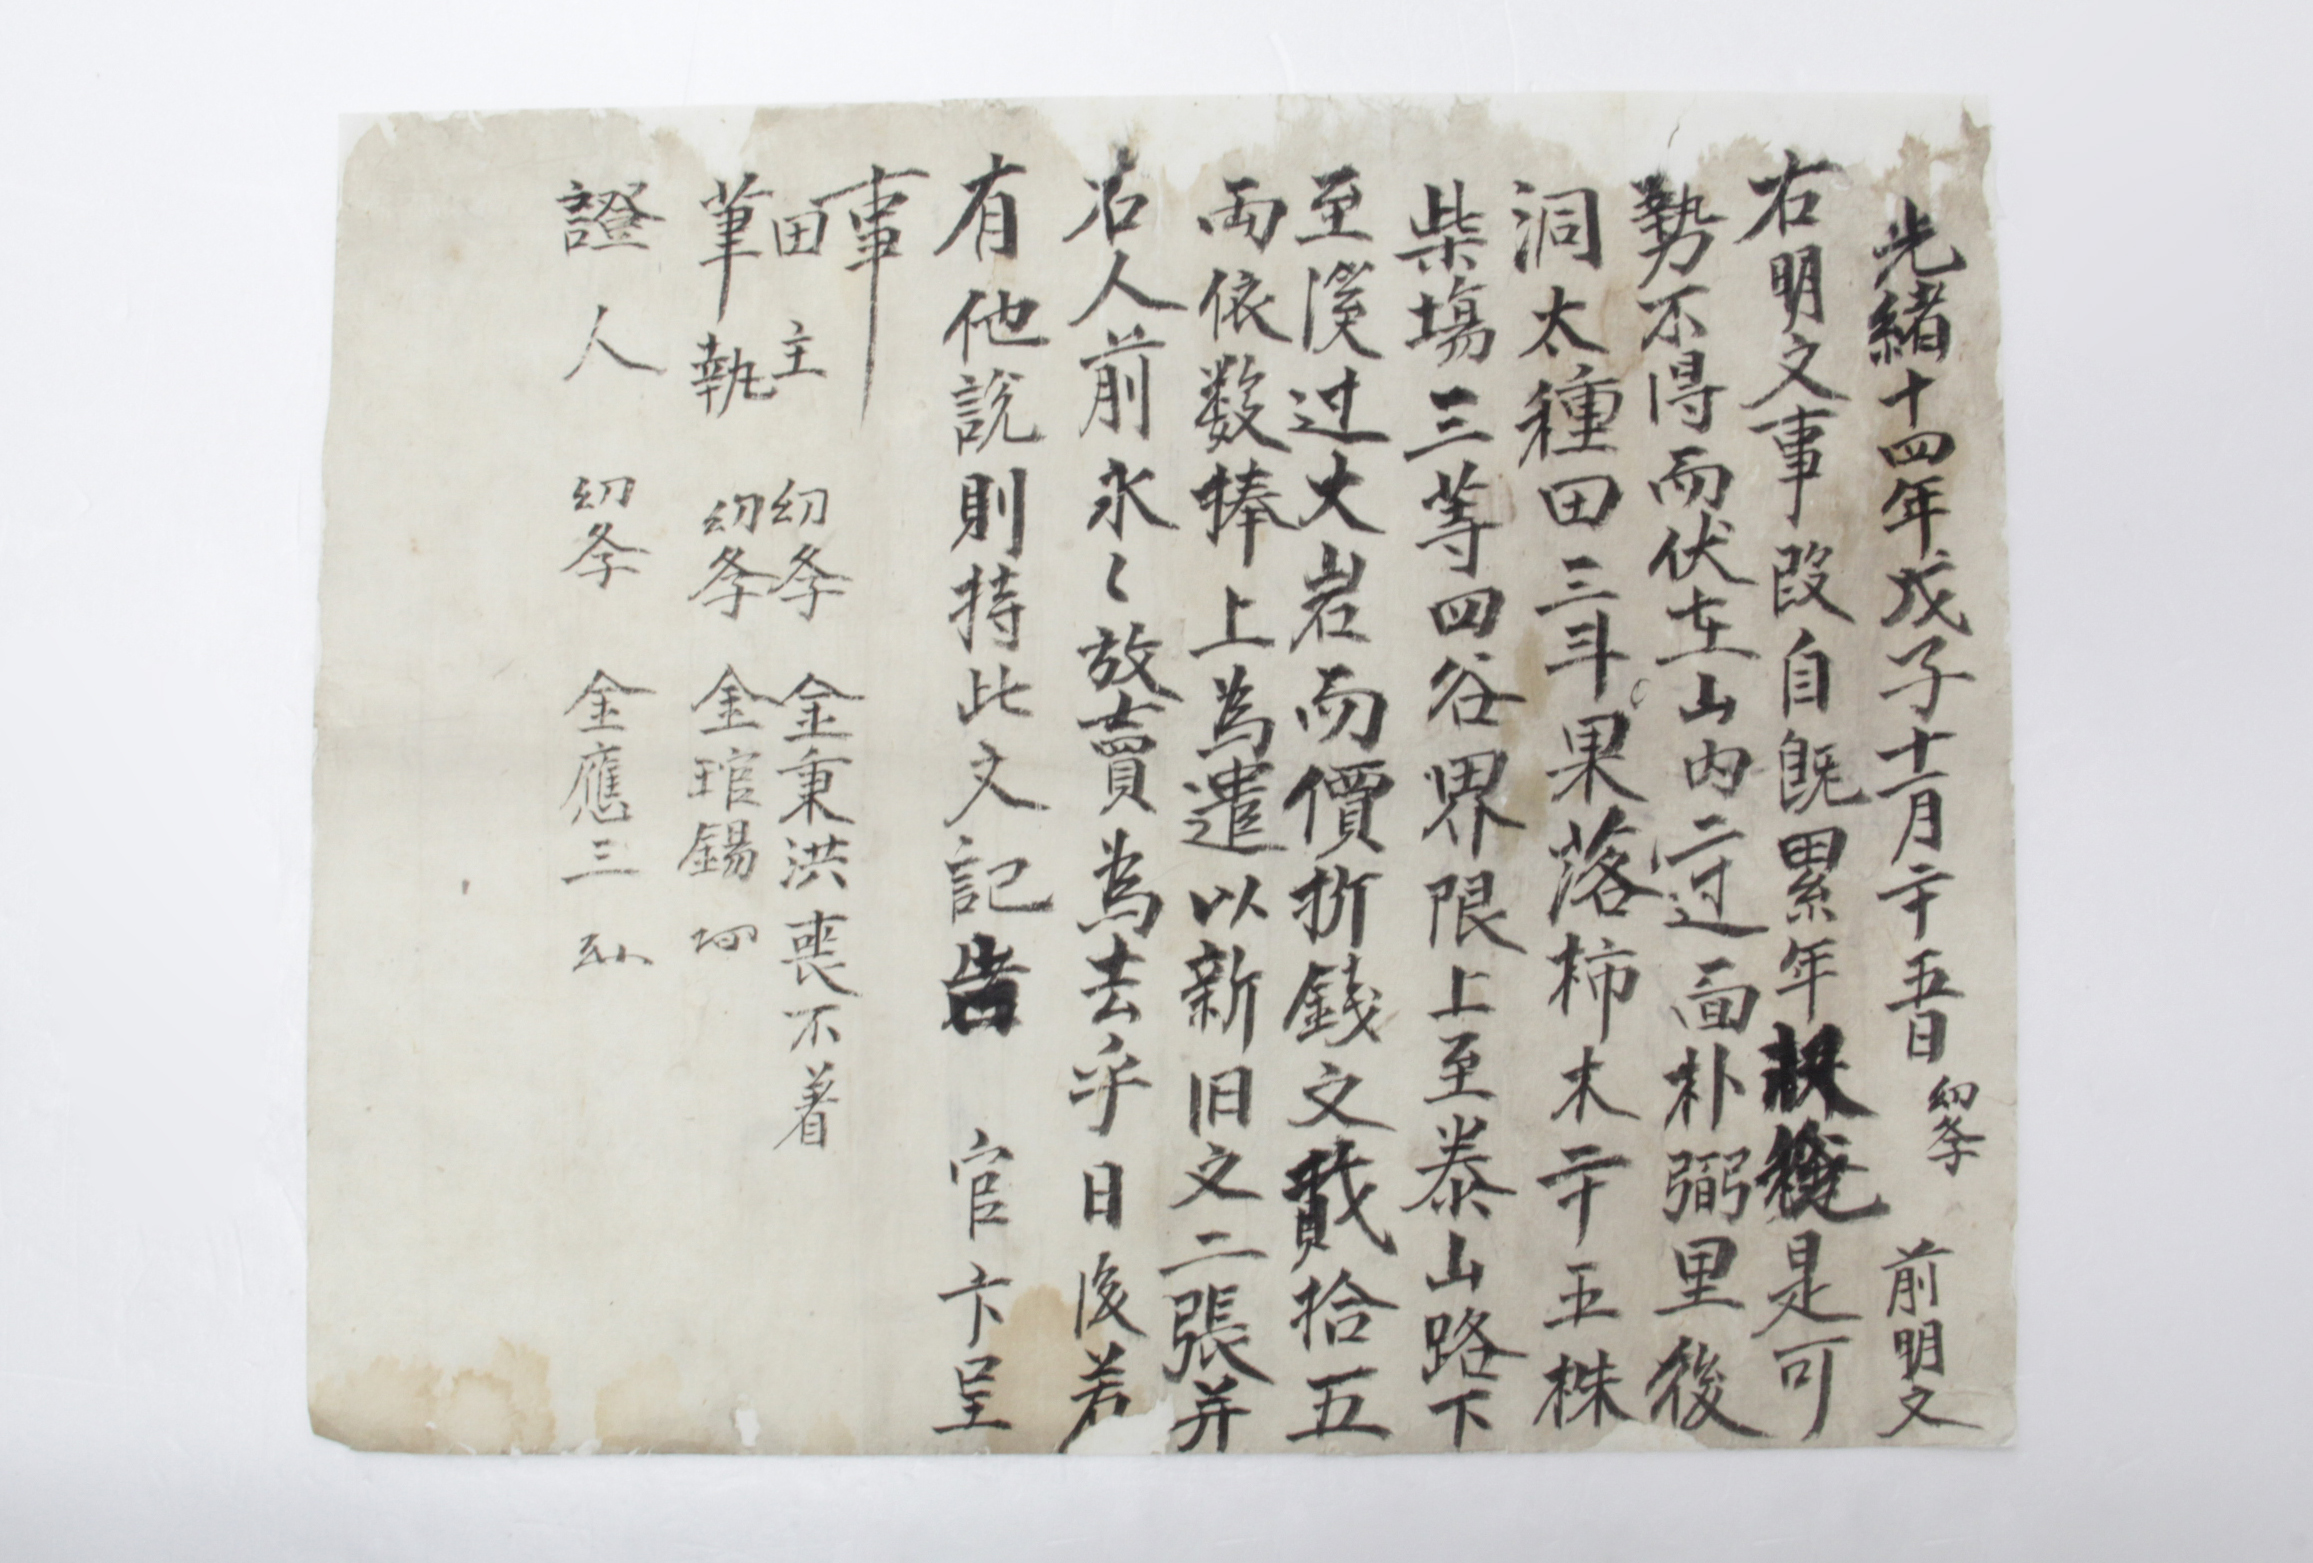 光緒十四年戊子十一月二十五日幼孝 前明文
右明文事段自旣累年是可
勢不得而伏在山內二过面朴弼里後
洞太種田三斗果落柿木二十五株
柴塲三等四谷界限上至泰山路下
至溪过大岩而價折錢文貳拾五
両依数捧上為遣以新旧文二張并
右人前永〻放賣為去乎日後若
有他說則持此文記告 官卞呈
事
田主 幼孝 金秉洪喪不着
筆執 幼孝 金琯錫
證人 幼孝 金應三